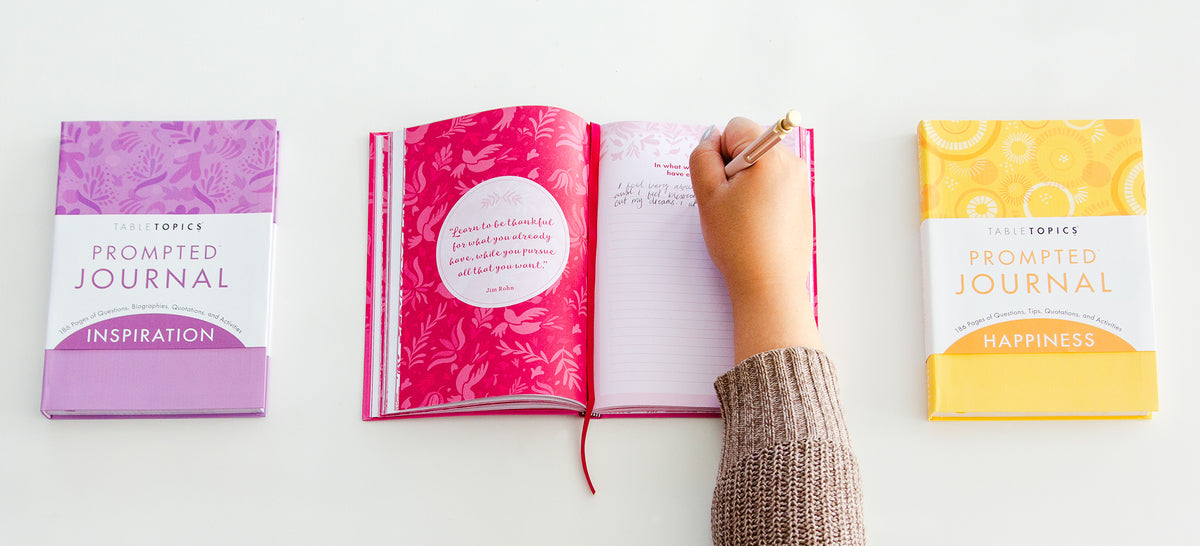 TABLETOPICS
PROMPTED
JOURNAL
186 Pages of Questions, Biographies, Quotations, and Activities
INSPIRATION
"Learn to be thankful
for what you already
have, while you pursue
all that you want."
Jim Rohn
In what
have
I feel very
and I feel
out my dreams. I
TABLETOPICS
PROMPTED
JOURNAL
186 Pages of Questions, Tips, Quotations, and Activities
HAPPINESS